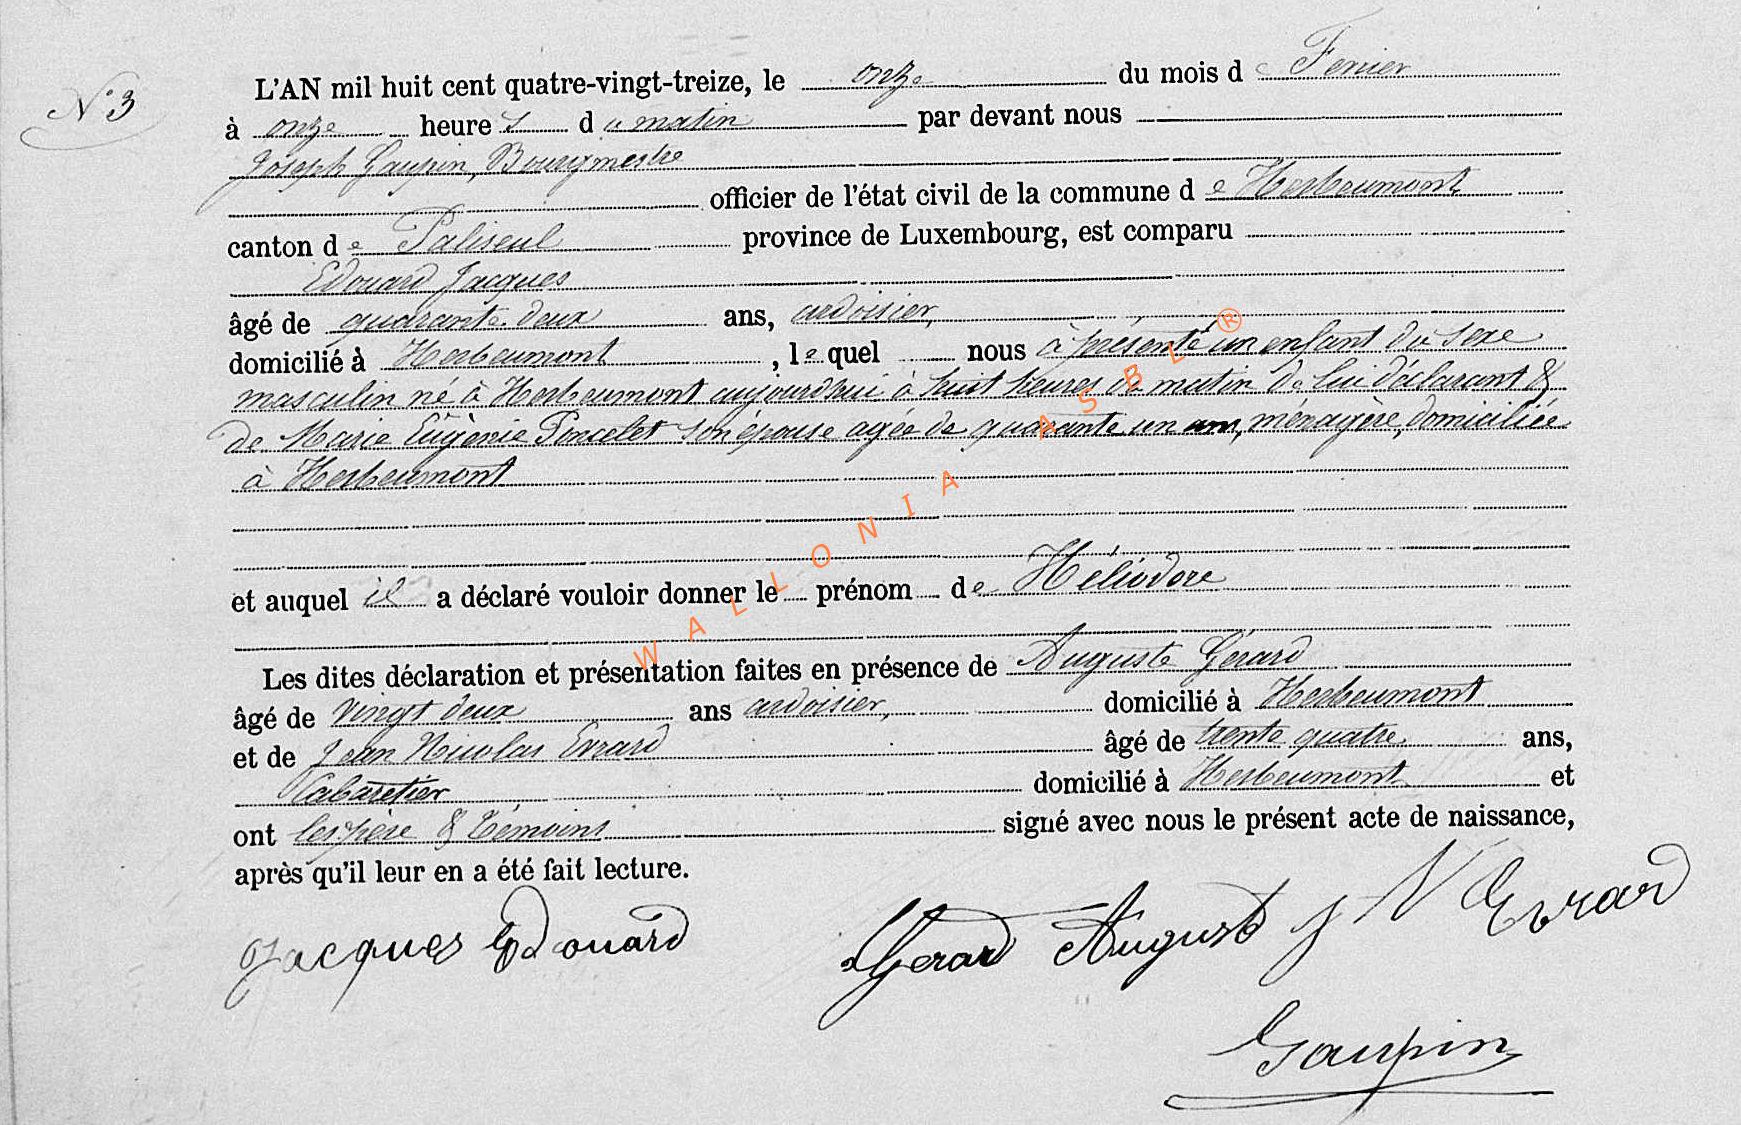 N° 3
L'AN mil huit cent quatre-vingt-treize, le onze du mois de Fevrier
à onze heures du matin par devant nous
Joseph Gaupin, Bourgmestre
officier de l'état civil de la commune de Herbeumont
canton de Paliseul province de Luxembourg, est comparu
Edouard Jacques
âgé de quarante deux ans, ardoisier,
domicilié à Herbeumont, lequel nous à présenté un enfant du sexe
masculin né à Herbeumont aujourdhui à huit heures du matin de lui déclarant &
de Marie Eugènie Poncelet son épouse agée de quarante un ans, ménagère, domiciliée
à Herbeumont
et auquel il a déclaré vouloir donner le prénom de Héliodore
Les dites déclaration et présentation faites en présence de Auguste Gérard
âgé de vingt deux ans ardoisier, domicilié à Herbeumont
et de Jean Nicolas Evrard âgé de trente quatre ans,
Cabaretier domicilié à Herbeumont et
ont les père & témoins signé avec nous le présent acte de naissance,
après qu'il leur en a été fait lecture.
Jacques Edouard Gerard August J N Evrard
Gaupin
WALLONIA ASBL ®